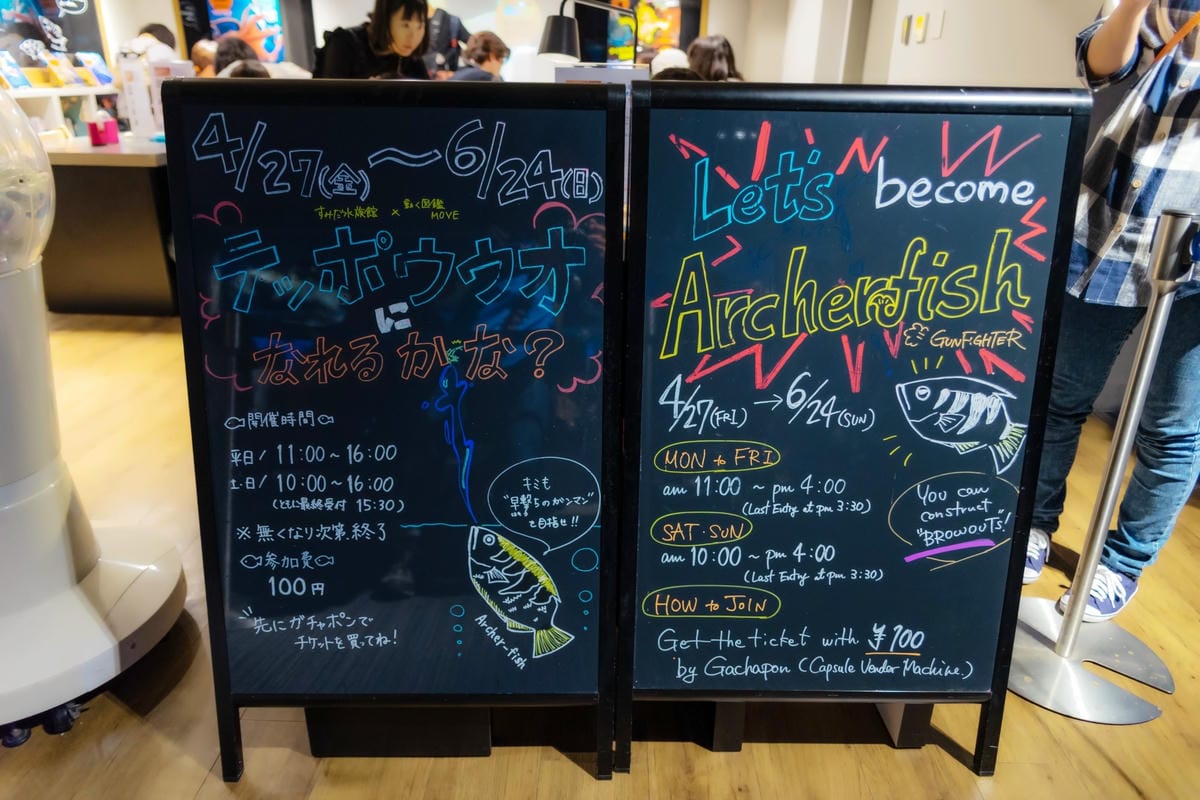 4/27(金)～6/24(日)
すみだ水族館 × 動く図鑑 MOVE
テッポウウオ
に
なれるかな？
開催時間
平日/ 11:00～16:00
土・日/ 10:00～16:00
(ともに最終受付 15:30)
※無くなり次第終了
参加費
100円
先にガチャポンで
チケットを買ってね!
キミも
"早撃ちのガンマン"
を目指せ!!
Archer-fish
Let's become
Archerfish
GUNFIGHTER
4/27(FRI) → 6/24(SUN)
MON to FRI
am 11:00 ~ pm 4:00
(Last Entry at pm 3:30)
SAT・SUN
am 10:00 ~ pm 4:00
(Last Entry at pm 3:30)
You can
construct
"BROWOUTS!"
HOW to JOIN
Get the ticket with ¥100
by Gachapon (Capsule Vender Machine.)